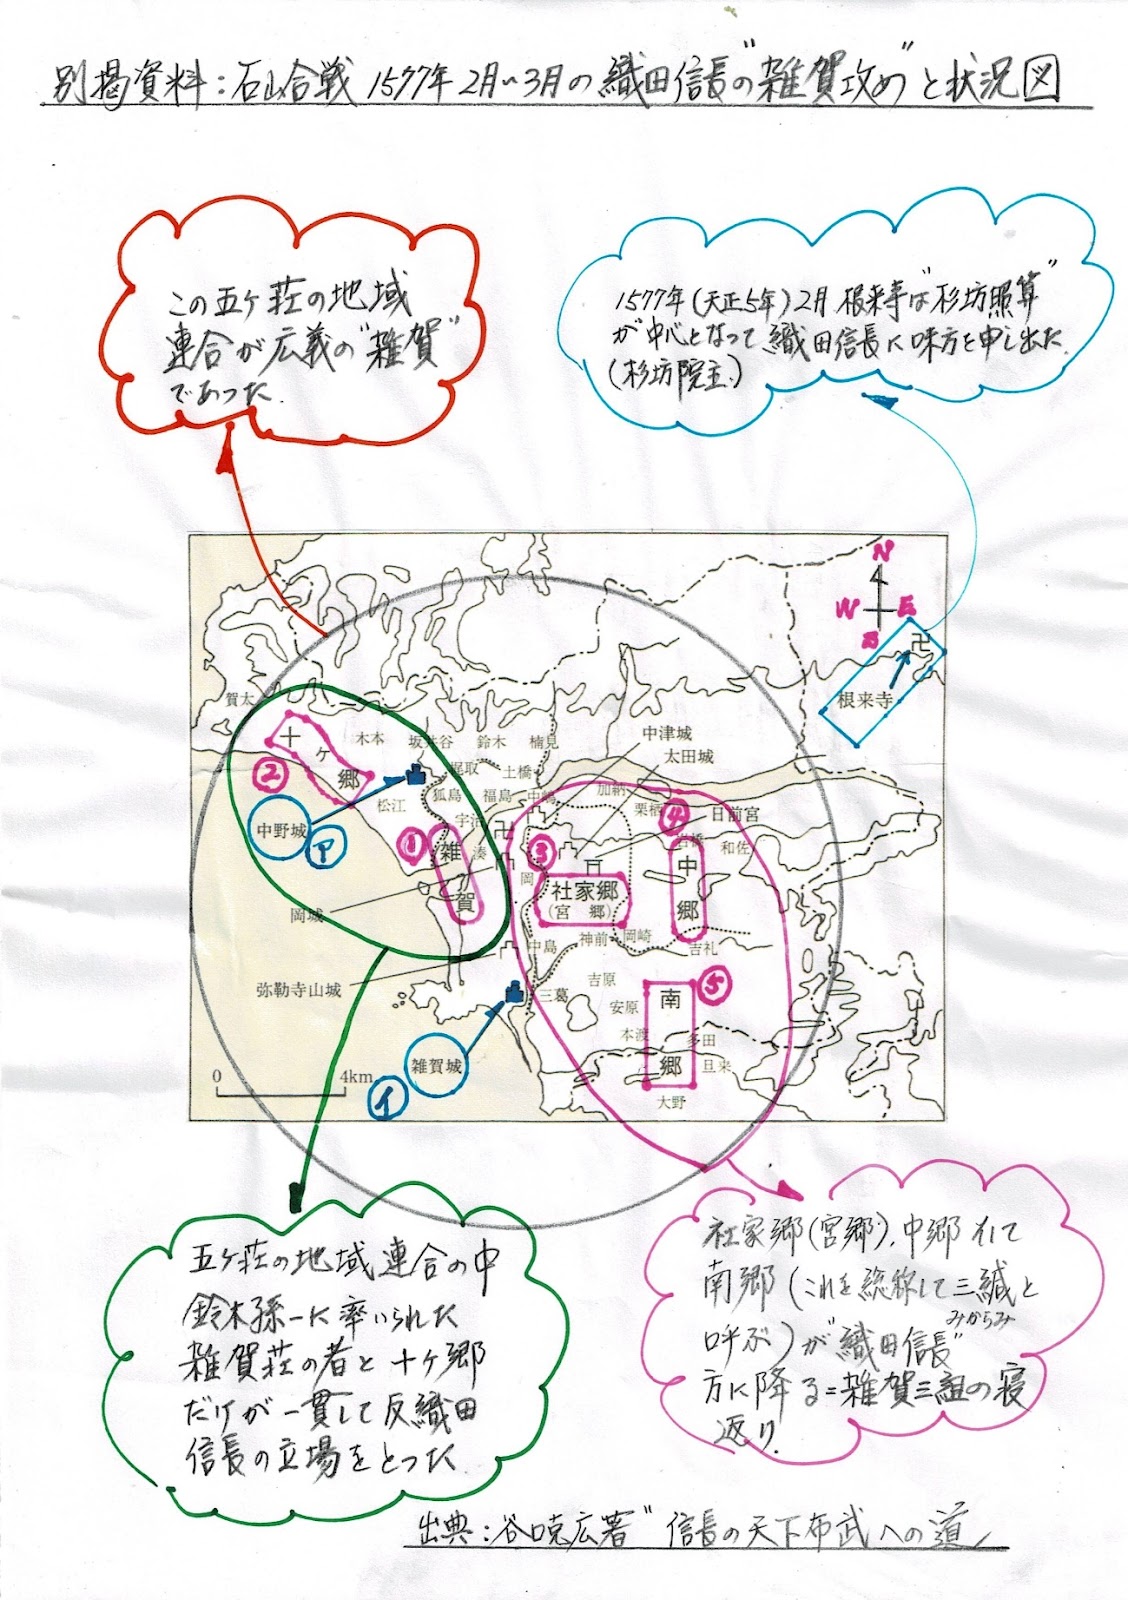 別掲資料:石山合戦 1577年2月〜3月の織田信長の"雑賀攻め"と状況図
この五ヶ荘の地域
連合が広義の"雑賀"
であった.
1577年(天正5年)2月.根来寺は"杉坊照算"
が中心となって織田信長に味方を申し出た.
(杉坊院主.)
N
W
E
S
卍
根来寺
賀太
十
ヶ
郷
②
木本
坂井谷
鈴木
楠見
中津城
太田城
堀取
土橋
狐島
福島
中嶋
加納
栗栖
④
日前宮
松江
宇治
卍
中野城
ア
①
雑
賀
湊
岡
③
岩橋
和佐
社家郷
(宮 郷)
中
郷
岡城
中島
神前
岡崎
吉礼
弥勒寺山城
三葛
吉原
安原
南
郷
⑤
本渡
多田
旦来
雑賀城
イ
大野
0
4km
五ヶ荘の地域連合の中
鈴木孫一に率いられた
雑賀荘の者と十ヶ郷
だけが一貫して反織田
信長の立場をとった
社家郷(宮郷).中郷
南郷(これを総称して三緘と
みからみ
呼ぶ)が"織田信長"
方に降る=雑賀三組の寝
返り.
出典:谷口克広著"信長の天下布武への道"